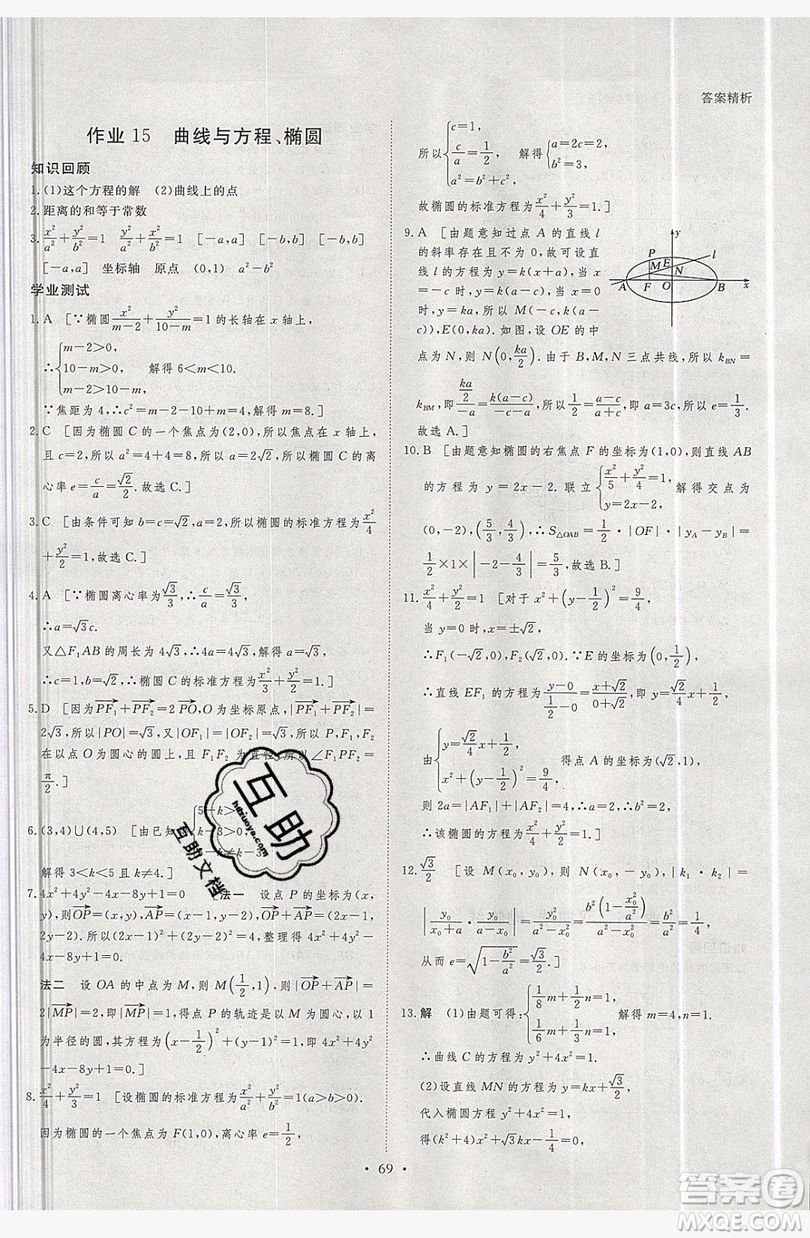 答案精析
作业 15 曲线与方程、椭圆
知识回顾
1.(1)这个方程的解 (2)曲线上的点
2.距离的和等于常数
3.x²/a²+y²/b²=1 [-a,a] [-b,b] [-b,b]
[-a,a] 坐标轴 原点 (0,1) a²-b²
学业测试
1.A [∵椭圆x²/(m-2)+y²/(10-m)=1的长轴在 x 轴上,
∴{m-2>0,
10-m>0, 解得 6<m<10.
m-2>10-m,
∵焦距为 4,∴c²=m-2-10+m=4,解得 m=8.]
2.C [因为椭圆 C 的一个焦点为(2,0),所以焦点在 x 轴上,
且 c=2,所以 a²=4+4=8,所以 a=2√2,所以椭圆 C 的离
心率 e=c/a=√2/2.故选 C.]
3.C [由条件可知 b=c=√2,a=2,所以椭圆的标准方程为x²/4
+y²/2=1,故选 C.]
4.A [∵椭圆离心率为√3/3,∴c/a=√3/3,
∴a=√3c.
又△F₁AB 的周长为 4√3,∴4a=4√3,解得 a=√3,
∴c=1,∴b=√2,∴椭圆 C 的方程为x²/3+y²/2=1.]
5.D [因为PF₁+PF₂=2PO,O 为坐标原点,|PF₁+PF₂|=
2√3,所以|PO|=√3,又|OF₁|=|OF₂|=√3,所以 P,F₁,F₂
在以点 O 为圆心的圆上,且 F₁F₂为直径,所以∠F₁PF₂=
π/2.]
6.(3,4)∪(4,5) [由已知
{5-k>
解得 3<k<5 且 k≠4.]
7.4x²+4y²-4x-8y+1=0 法一 设点 P 的坐标为(x,
y),则OP=(x,y),AP=(x-1,y-2),OP+AP=(2x-1,
2y-2).所以(2x-1)²+(2y-2)²=4,整理得 4x²+4y²-
4x-8y+1=0.
法二 设 OA 的中点为 M,则 M(1/2,1),|OP+AP|=
2|MP|=2,即|MP|=1,得点 P 的轨迹是以 M 为圆心,以 1
为半径的圆,方程为(x-1/2)²+(y-1)²=1,即 4x²+4y²
-4x-8y+1=0.]
8.x²/4+y²/3=1 [设椭圆的标准方程为x²/a²+y²/b²=1(a>b>0),
因为椭圆的一个焦点为 F(1,0),离心率 e=1/2,
所以{c=1,
c/a=1/2, 解得{c=1,
a=2,
a²=b²+c²,
b²=3,
故椭圆的标准方程为x²/4+y²/3=1.]
9.A [由题意知过点 A 的直线 l
的斜率存在且不为 0,故可设
直线 l 的方程为 y=k(x+a),当
x=-c 时,y=k(a-c),当 x=0
时,y=ka,所以 M(-c,k(a-
c)),E(0,ka).如图,设 OE 的中
y P M E N l A F O B x
点为 N,则 N(0,ka/2).由于 B,M,N 三点共线,所以 kBN=
kBM,即(ka/2)/(-a)=k(a-c)/(-c-a),所以1/2=(a-c)/(a+c),即 a=3c,所以 e=1/3.
故选 A.]
10.B [由题意知椭圆的右焦点 F 的坐标为(1,0),则直线
的方程为 y=2x-2.联立{x²/5+y²/4=1,
y=2x-2,
解得交点为
(0,-2),(5/3,4/3),∴S△OAB=1/2·|OF|·|yA-yB|=
1/2×1×|-2-4/3|=5/3,故选 B.]
11.x²/4+y²/2=1 [对于 x²+(y-1/2)²=9/4,
当 y=0 时,x=±√2,
∴F₁(-√2,0),F₂(√2,0).∵E 的坐标为(0,1/2),
∴直线 EF₁ 的方程为(y-0)/(1/2-0)=(x+√2)/(0+√2),即 y=√2/4x+1/2.
由{y=√2/4x+1/2,
x²+(y-1/2)²=9/4
得点 A 的坐标为(√2,1),
则 2a=|AF₁|+|AF₂|=4,∴a=2,∴b²=2,
∴该椭圆的方程为x²/4+y²/2=1.]
12.√3/2 [设 M(x₀,y₀),则
|y₀/(x₀+a)·y₀/(x₀-a)|=y₀²/(a²-x₀²)=b²(1-x₀²/a²)/(a²-x₀²)=b²/a²=1/4,
从而 e=√(1-b²/a²)=√3/2.]
13.解 (1)由题可得:{1/8m+1/2n=1,
1/6m+1/3n=1,
解得 m=4,n=1.
∴曲线 C 的方程为 y²+4x²=1.
(2)设直线 MN 的方程为
代入椭圆方程 y²+4x²=1,
得(k²+4)x²+√3kx-1/4=0,
• 69 •
互助
hezuoye.com
互助文档
答案圈
MXQE.COM